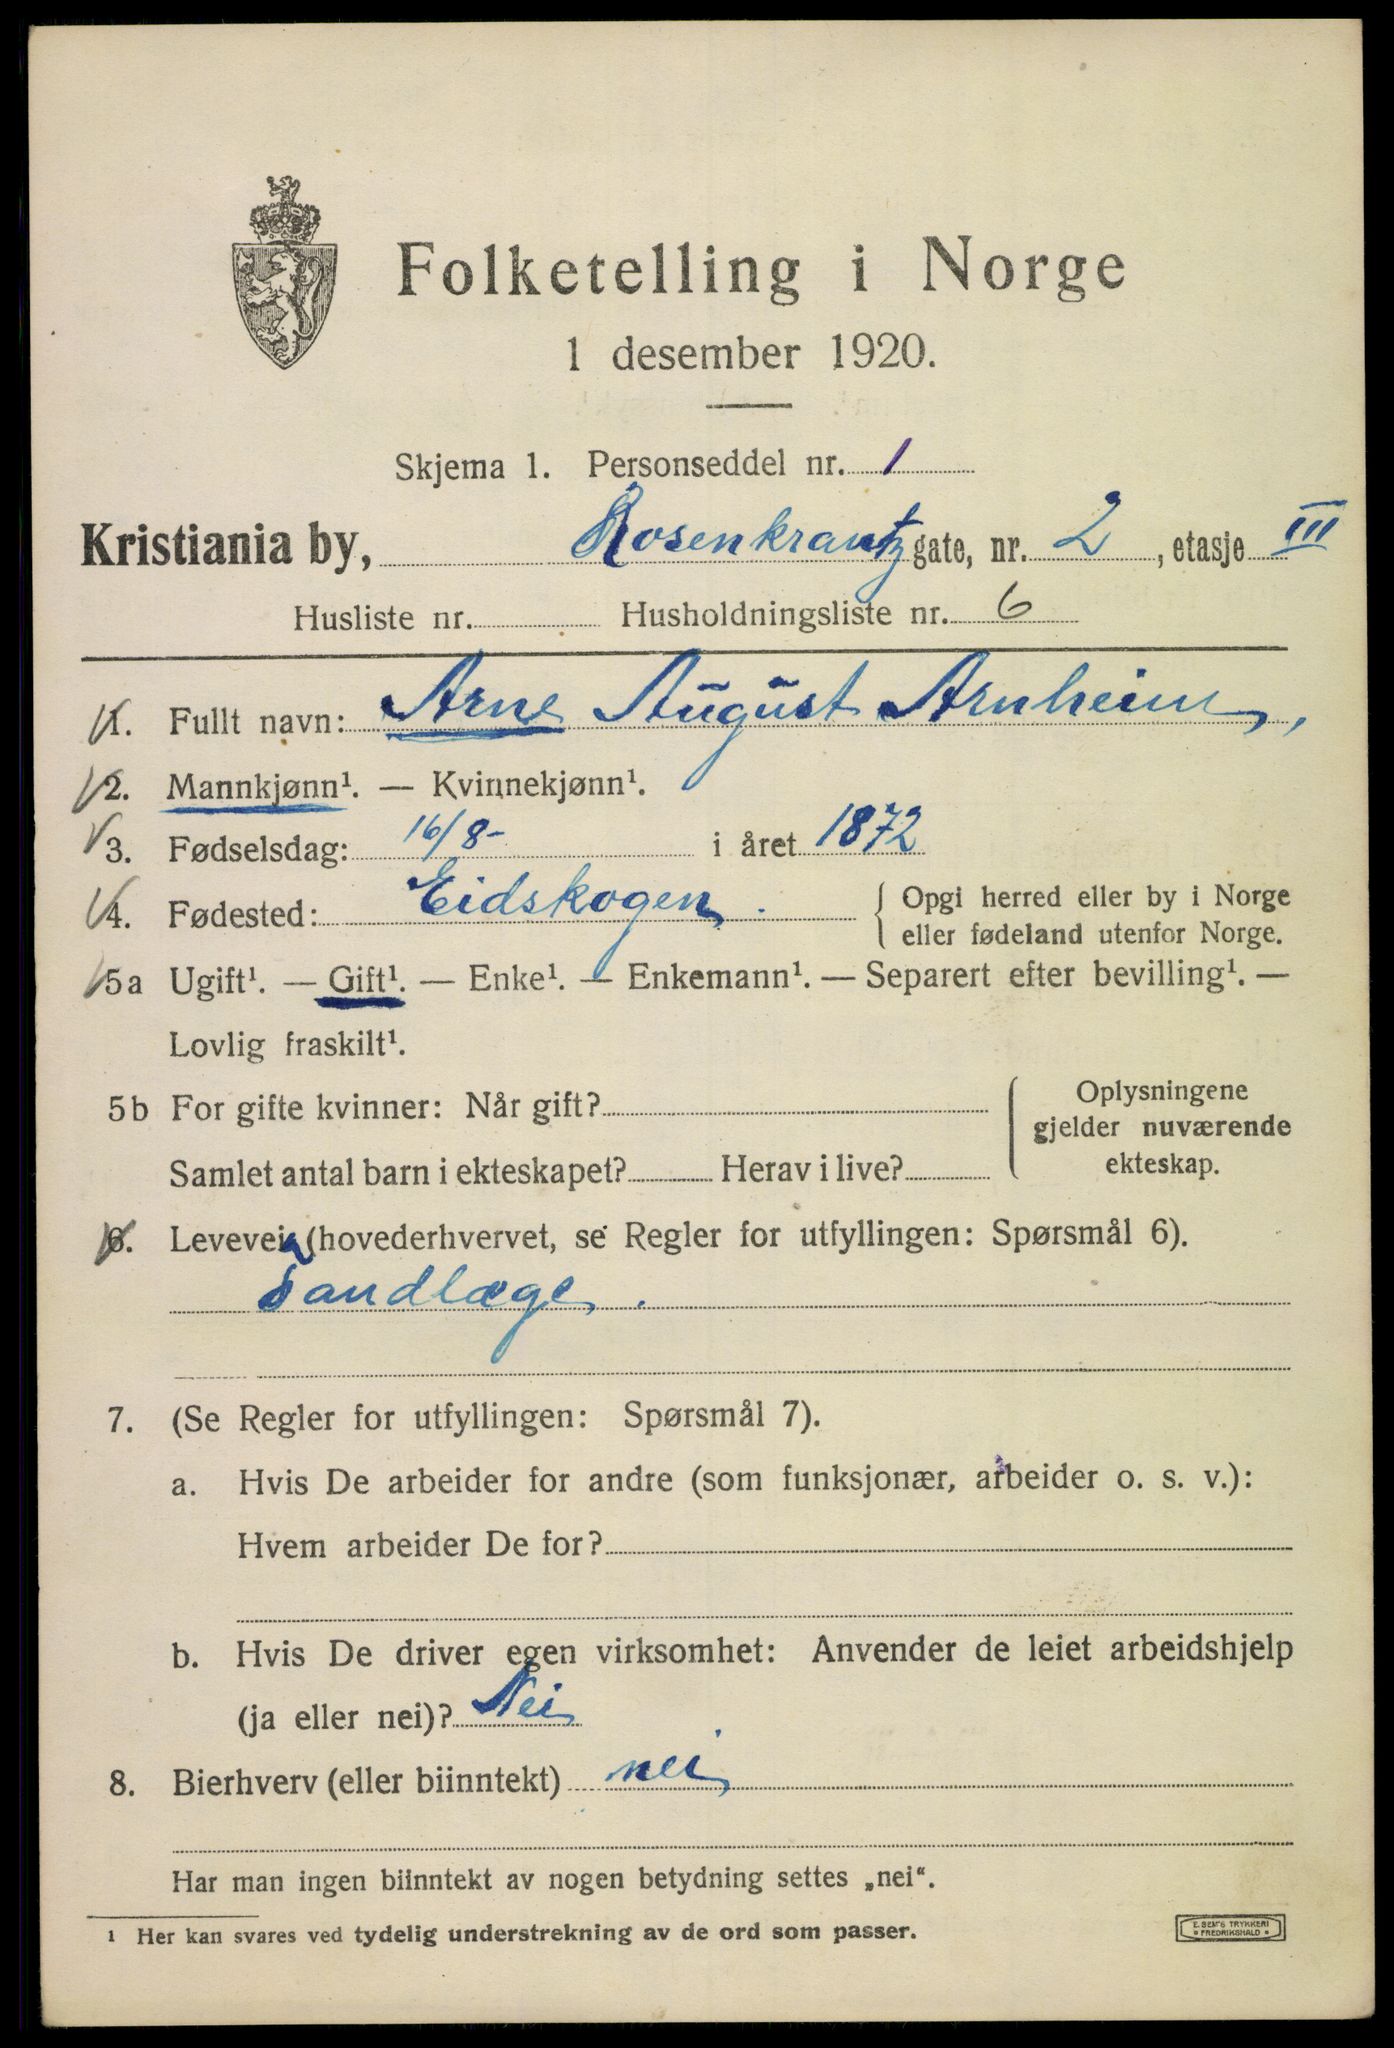 Folketelling i Norge
1 desember 1920.
Skjema 1. Personseddel nr. 1
Kristiania by, Rosenkrantz gate, nr. 2, etasje III
Husliste nr. Husholdningsliste nr. 6
1. Fullt navn: Arne August Arnheim,
2. Mannkjønn¹. — Kvinnekjønn¹.
3. Fødselsdag: 16/8- i året 1872
4. Fødested: Eidskogen. { Opgi herred eller by i Norge
eller fødeland utenfor Norge.
5a Ugift¹. — Gift¹. — Enke¹. — Enkemann¹. — Separert efter bevilling¹. —
Lovlig fraskilt¹.
5b For gifte kvinner: Når gift? Oplysningene
gjelder nuværende
Samlet antal barn i ekteskapet? Herav i live? ekteskap.
6. Levevei (hovederhvervet, se Regler for utfyllingen: Spørsmål 6).
Tandlæge.
7. (Se Regler for utfyllingen: Spørsmål 7).
a. Hvis De arbeider for andre (som funksjonær, arbeider o. s. v.):
Hvem arbeider De for?
b. Hvis De driver egen virksomhet: Anvender de leiet arbeidshjelp
(ja eller nei)? Nei
8. Bierhverv (eller biinntekt) nei
Har man ingen biinntekt av nogen betydning settes „nei“.
¹ Her kan svares ved tydelig understrekning av de ord som passer.
E. SEM'S TRYKKERI
* FREDRIKSHALD *